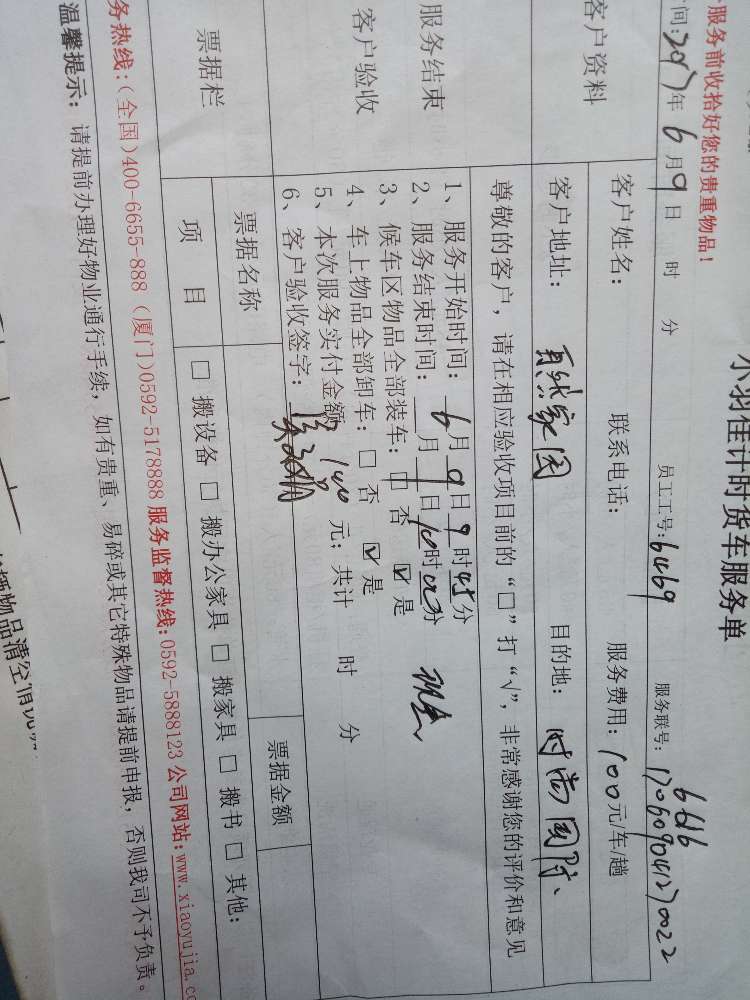 小羽佳计时货车服务单
服务前收拾好您的贵重物品！
间：2017年6月9日 时 分 员工工号：6469 服务联号：6616
170609041270022
客户资料
客户姓名： 联系电话： 服务费用：100元/车/趟
客户地址： 家园 目的地： 时尚国际
服务结束
客户验收
尊敬的客户，请在相应验收项目前的“□”打“√”，非常感谢您的评价和意见
1、服务开始时间：6月9日9时45分
2、服务结束时间： 月 日10时00分 现金
3、候车区物品全部装车：□ 否 ☑ 是
4、车上物品全部卸车：□ 否 ☑ 是
5、本次服务实付金额 100 元；共计 时 分
6、客户验收签字：
票据栏
票据名称 票据金额
项 目 □ 搬设备 □ 搬办公家具 □ 搬家具 □ 搬书 □ 其他：
务热线：（全国）400-6655-888（厦门）0592-5178888 服务监督热线：0592-5888123 公司网站：www.xiaoyujia.co
温馨提示：请提前办理好物业通行手续，如有贵重、易碎或其它特殊物品请提前申报，否则我司不予负责。
物品清空情况